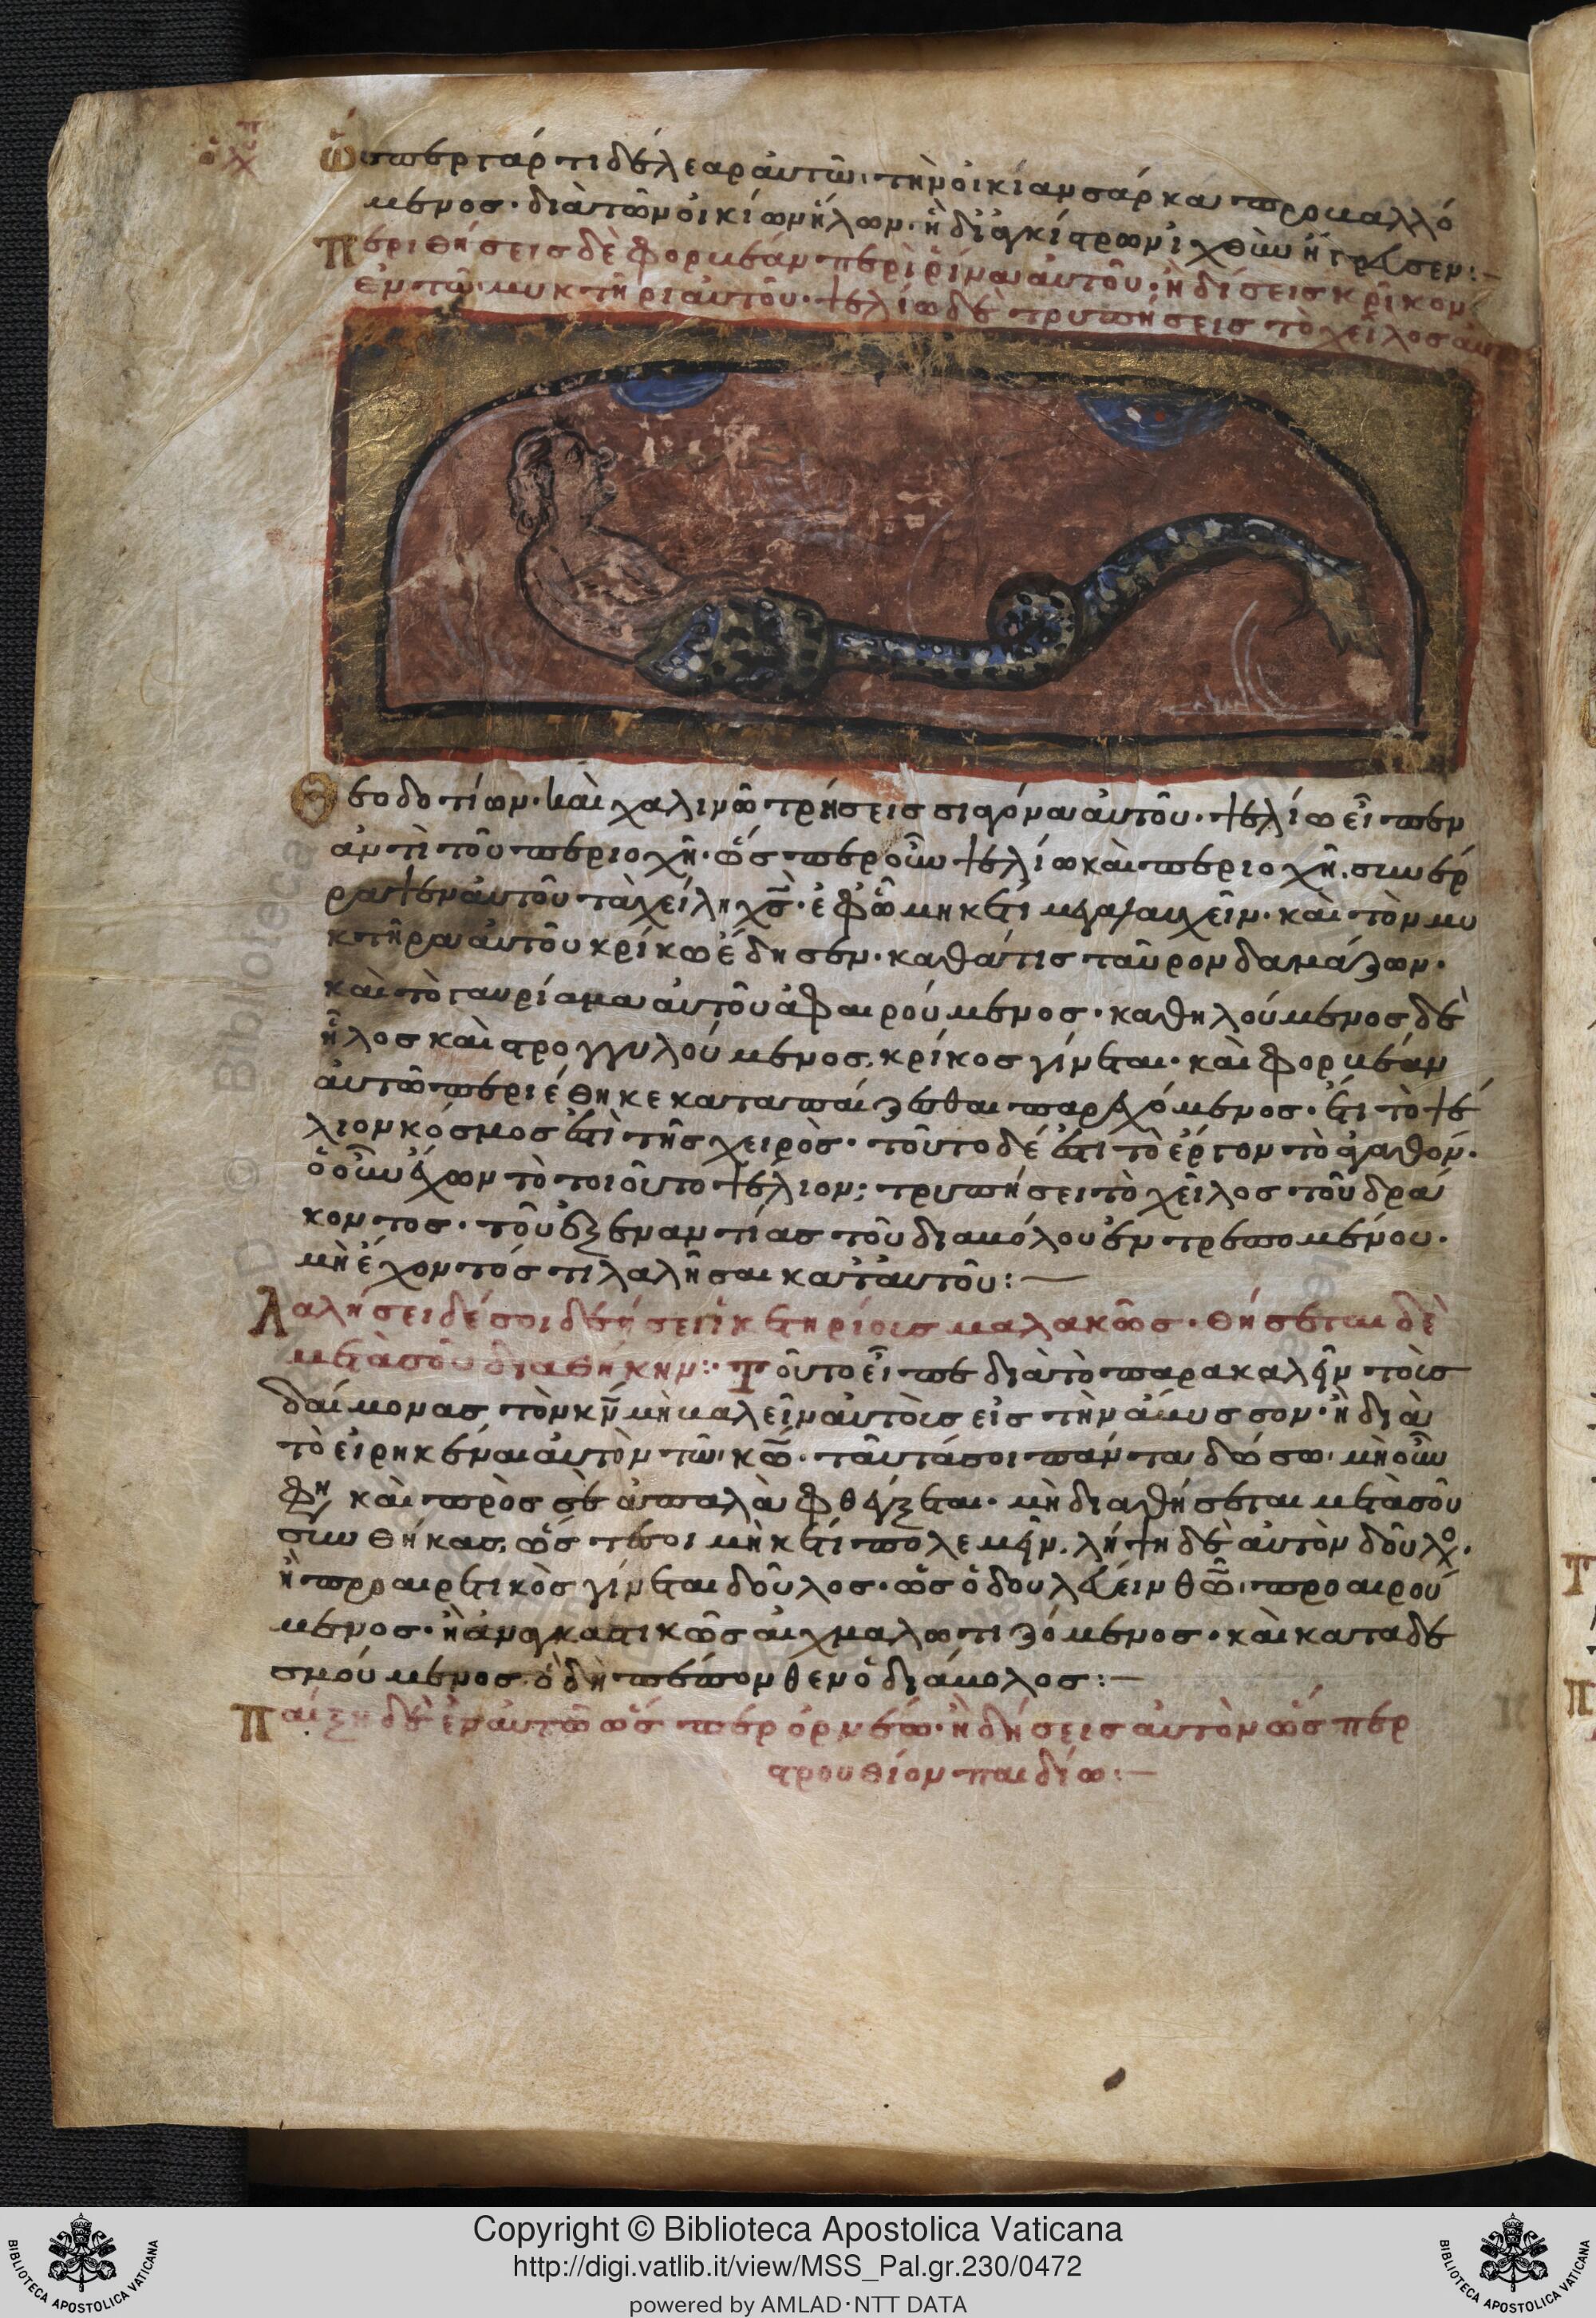 ὥσπερ γάρ τι δέλεαρ αὐτῶ, τὴν οἰκίαν σάρκα προβαλλό
μενος· διὰ τῶν οἰκίων ἥλων· ἢ δι' ἀγκίστρων ἰχθὺν ἤγρευσεν:-
Περιθήσεις δὲ φορβεὰν περὶ ῥίνα αὐτοῦ· ἢ δήσεις κρίκον
ἐν τῶ μυκτῆρι αὐτοῦ· ψελίω δὲ τρυπήσεις τὸ χεῖλος αὐτ
Θεοδοτίων· καὶ χαλινῶ τρήσεις σιαγόνα αὐτοῦ· ψελίω εἶπεν
ἀντὶ τοῦ περιοχῆ· ὥσπερ οὖν ψελίω καὶ περιοχῆ, συνέρ
ραψεν αὐτοῦ τὰ χείλη χς· ἐφ' ὧ μηκέτι μεγαλαυχεῖν· καὶ τὸν μυ
κτῆρα αὐτοῦ κρίκω ἔδησεν· καθά τις ταῦρον δαμάζων·
καὶ τὸ γαυρίαμα αὐτοῦ ἀφαιρούμενος· καθηλούμενος δὲ
ἧλος καὶ στρογγυλούμενος, κρίκος γίνεται· καὶ φορβεὰν
αὐτῶ περιέθηκε καταπαίζεσθαι παρεχόμενος· ἔτι τὸ ψέ
λιον κόσμος ἐστὶ τῆς χειρὸς· τοῦτο δέ ἐστι τὸ ἔργον τὸ ἀγαθόν·
ὁ οὖν ἔχων τὸ τοιοῦτο ψέλιον; τρυπήσει τὸ χεῖλος τοῦ δρά
κοντος· τοῦ ἐξεναντίας τοῦ διαβόλου ἐντρεπομένου·
μὴ ἔχοντός τι λαλῆσαι κατ' αὐτοῦ:-
Λαλήσει δέ σοι δεήσει ἱκετηρίοις μαλακῶς· θήσεται δὲ
μετὰ σοῦ διαθήκην:· Τοῦτο εἶπε διὰ τὸ παρακαλεῖν τοὺς
δαίμονας τὸν κν μὴ βαλεῖν αὐτοὺς εἰς τὴν ἄβυσσον· ἢ διὰ
τὸ εἰρηκέναι αὐτὸν τῶ κω· ταῦτά σοι πάντα δώσω· μὴ οὖν
φη καὶ πρὸς σὲ ἁπαλὰ φθέγξεται· μὴ διαθήσεται μετὰ σοῦ
συνθήκας, ὥστέ σοι μηκέτι πολεμεῖν. λήψη δὲ αὐτὸν δοῦλον·
ἢ προαιρετικὸς γίνεται δοῦλος· ὡς ὁ δουλεύειν θῶ, προαιρού
μενος· ἢ ἀναγκαστικῶς αἰχμαλωτιζόμενος· καὶ καταδε
σμούμενος ὃ δὴ πέπονθεν ὁ διάβολος:-
Παίξη δὲ ἐν αὐτῶ ὥσπερ ὀρνέω· ἢ δήσεις αὐτὸν ὥσπερ
στρουθίον παιδίω:-
Copyright © Biblioteca Apostolica Vaticana
http://digi.vatlib.it/view/MSS_Pal.gr.230/0472
powered by AMLAD·NTT DATA
BIBLIOTECA APOSTOLICA VATICANA
BIBLIOTECA APOSTOLICA VATICANA